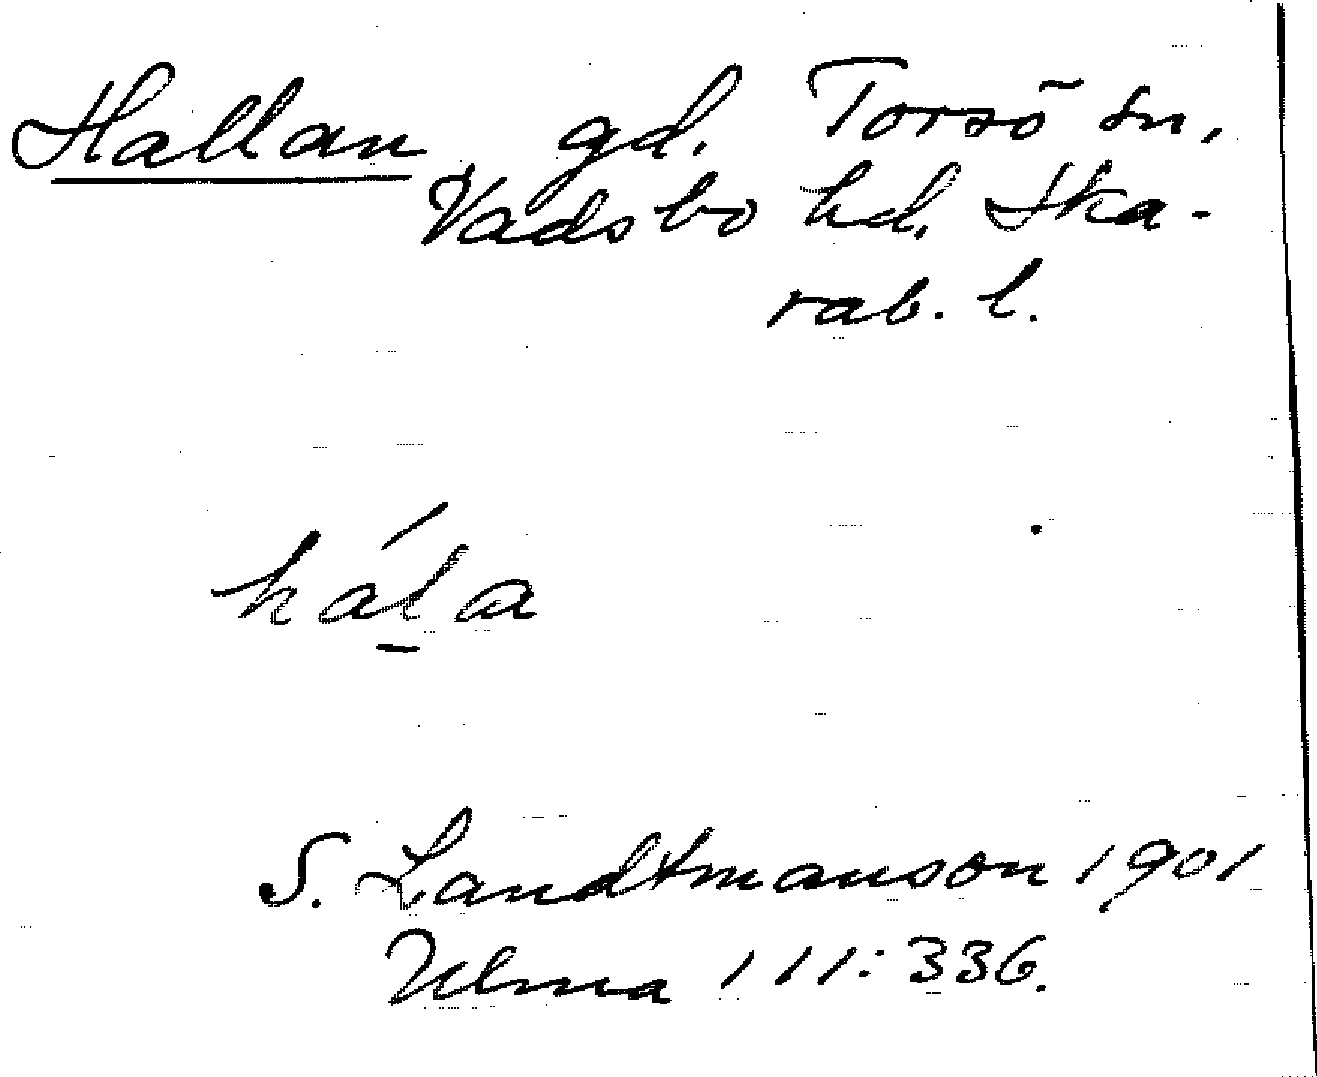 Hallan gd. Torsö sn.
Vadsbo hd. Ska-
rab. l.
hála
S. Landtmanson 1901
Ulma 111:336.